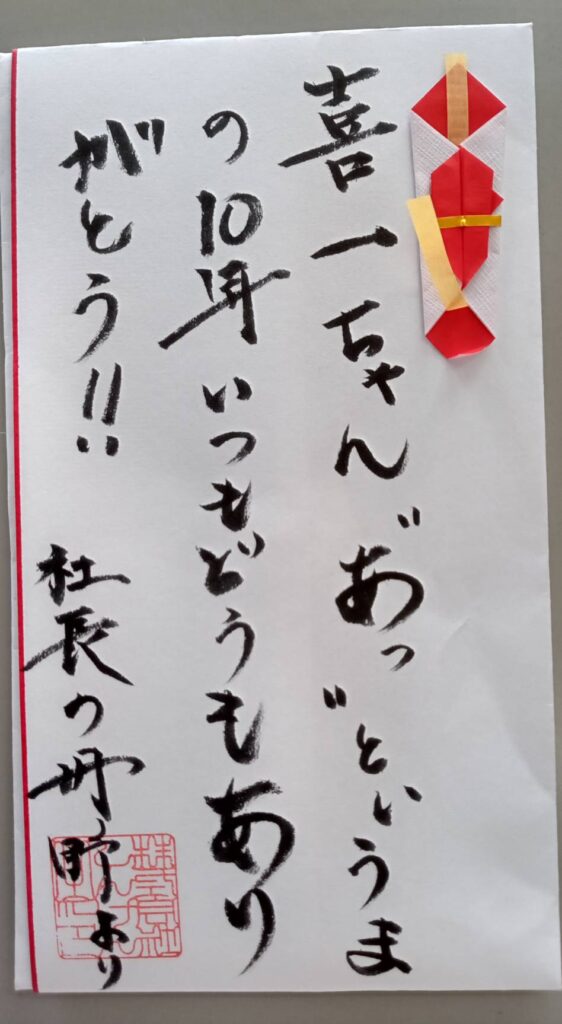 喜一ちゃん"あっ"というま
の10年いつもどうもあり
がとう!!
社長の丹野より
株式会社